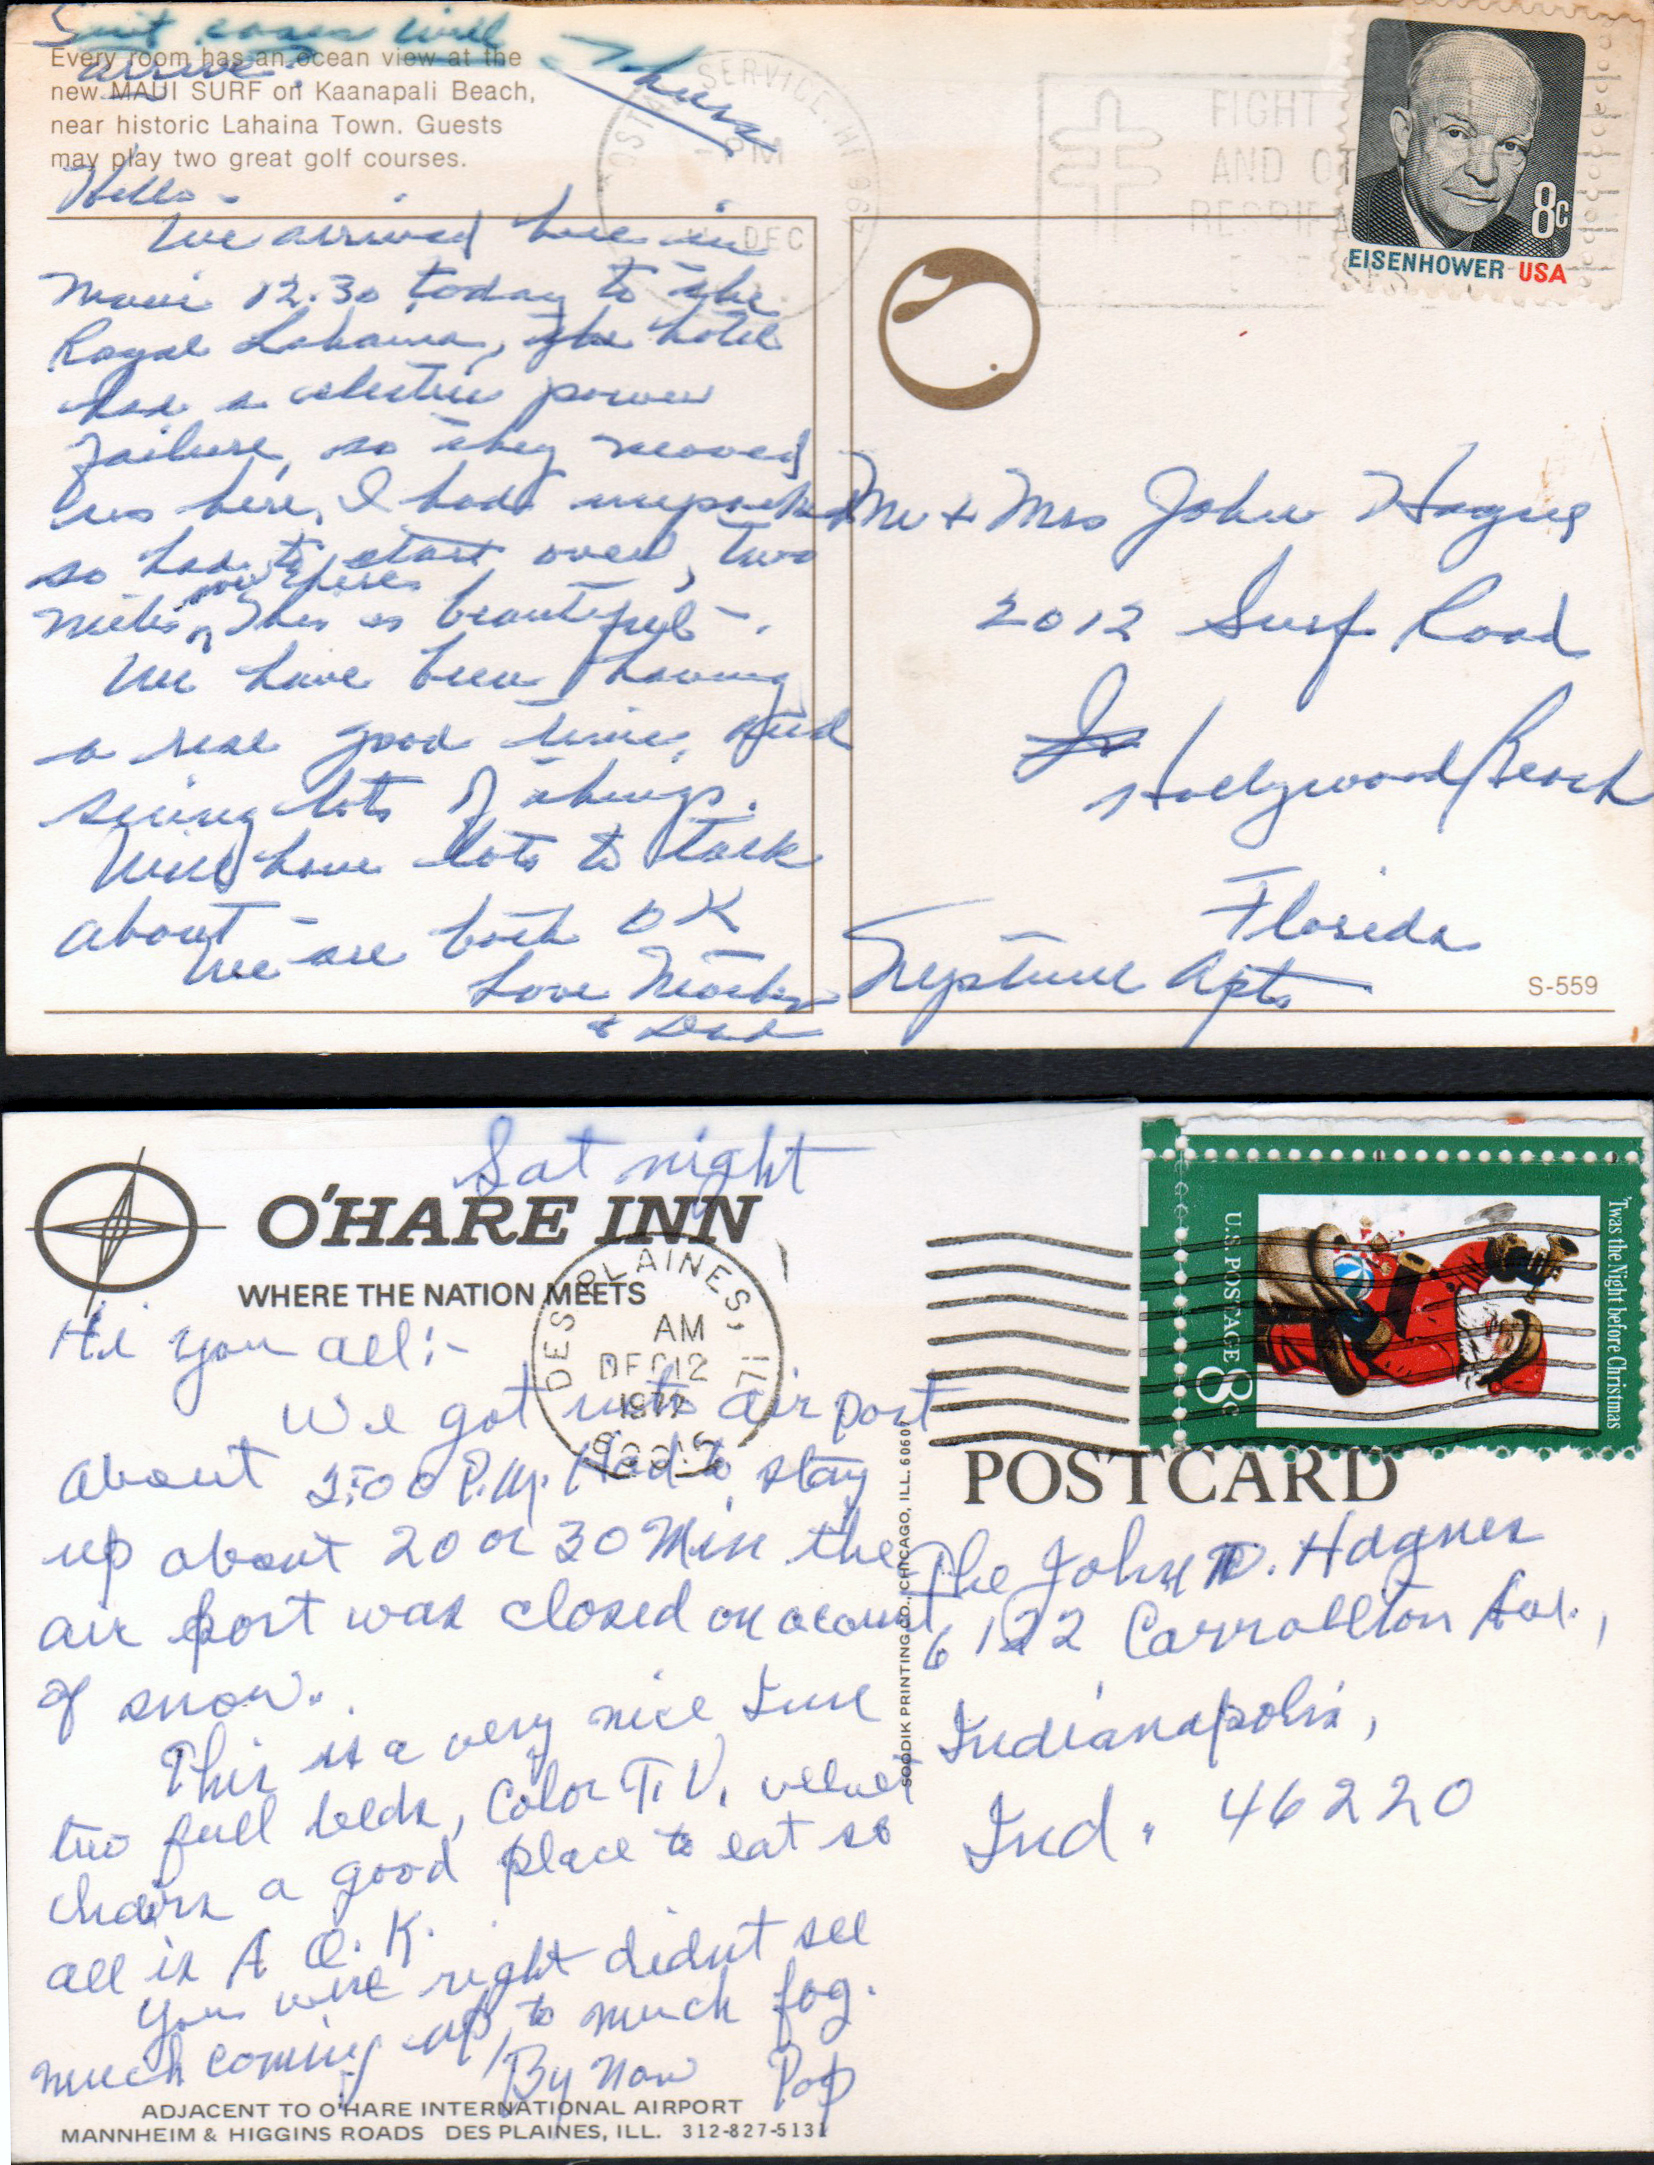 Suit cases will
arrive Thurs
Every room has an ocean view at the
new MAUI SURF on Kaanapali Beach,
near historic Lahaina Town. Guests
may play two great golf courses.
POSTAL SERVICE, HI 967
PM
DEC
FIGHT
AND OT
RESPIRA
8c
EISENHOWER USA
Hello -
We arrived here in
Maui 12.30 today to the
Royal Lahaina, the hotel
had a electric power
failure, so they moved
us here, I had unpacked
so had to start over, two
nites over here. This is beautiful -.
We have been having
a real good time, and
seeing lots of things.
Will have lots to talk
about -
We are both OK
Love Mother
& Dad
Mr & Mrs John Hagner
2012 Surf Road
Hollywood Beach
Florida
Neptune Apts
S-559
Sat night
O'HARE INN
WHERE THE NATION MEETS
DES PLAINES, IL
AM
DEC 12
1972
'Twas the Night before Christmas
U.S. POSTAGE 8c
POSTCARD
Hi you all:-
We got into air port
about 2:00 P.M. Had to stay
up about 20 or 30 Min the
air port was closed on acount
of snow.
This is a very nice Inn
two full beds, Color T.V. velvet
chairs a good place to eat so
all is A O.K.
You were right didnt see
much coming up, to much fog.
By Now Pop
The John D. Hagner
6122 Carrollton Ave.,
Indianapolis,
Ind. 46220
SOODIK PRINTING CO., CHICAGO, ILL. 60607
ADJACENT TO O'HARE INTERNATIONAL AIRPORT
MANNHEIM & HIGGINS ROADS DES PLAINES, ILL. 312-827-5131